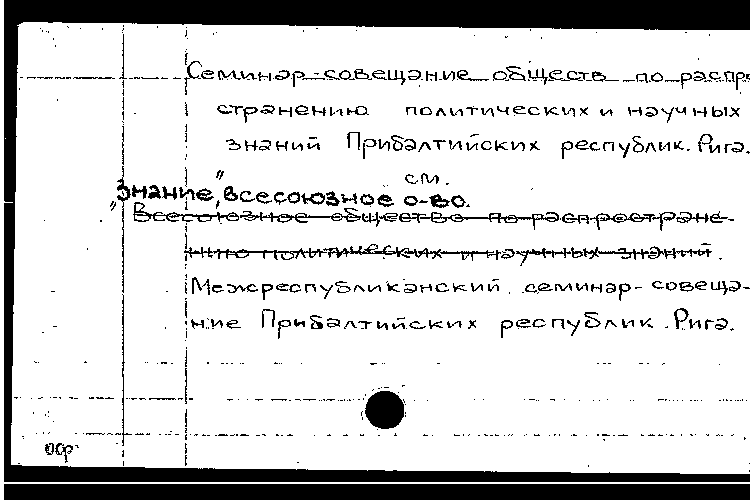 Семинар-совещание обществ по распро
странению политических и научных
знаний Прибалтийских республик. Рига.
см.
"Знание", всесоюзное о-во.
Всесоюзное общество по распростране-
нию политических и научных знаний.
Межреспубликанский семинар-совеща-
ние Прибалтийских республик. Рига.